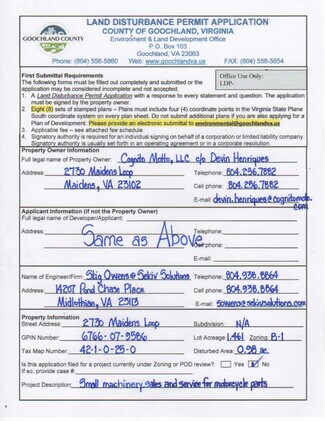 GOOCHLAND COUNTY
LAND DISTURBANCE PERMIT APPLICATION
COUNTY OF GOOCHLAND, VIRGINIA
Environment & Land Development Office
P.O. Box 103
Goochland, VA 23063
Phone: (804) 556-5860 Web: www.goochlandva.us Fax: (804) 556-5654
First Submittal Requirements
The following forms must be filled out completely and submitted or the application may be considered incomplete and not accepted:
Office Use Only:
LDP-
1. A Land Disturbance Permit Application with a response to every statement and question. The application must be signed by the property owner.
2. Eight (8) sets of stamped plans – Plans must include four (4) coordinate points in the Virginia State Plane South coordinate system on every plan sheet. Do not submit additional plans if you are also applying for a Plan of Development. Please provide an electronic submittal to environmental@goochlandva.us
3. Applicable fee – see attached fee schedule
4. Signatory authority is required for an individual signing on behalf of a corporation or limited liability company. Signatory authority is usually set forth in an operating agreement or in a corporate resolution.
Property Owner Information
Full legal name of Property Owner: Cognito Moto, LLC c/o Devin Henriques
Address: 2730 Maidens Loop Telephone: 804.256.7882
Maidens, VA 23102 Cell phone: 804.256.7882
E-mail: devin.henriques@cognitomoto.com
Applicant Information (if not the Property Owner)
Full legal name of Developer/Applicant:
Address: Same as Above Telephone:
Cell phone:
E-mail:
Name of Engineer/Firm: Stig Owens @ Sekiv Solutions Telephone: 804.938.8864
Address: 14207 Pond Chase Place Cell phone: 804.938.8864
Midlothian, VA 23113 E-mail: sowens@sekivsolutions.com
Property Information
Street Address: 2730 Maidens Loop Subdivision: N/A
GPIN Number: 6766-07-9586 Lot Acreage 1.461 Zoning: B-1
Tax Map Number: 42-1-0-25-0 Disturbed Area: 0.98 ac.
Is this application filed for a project currently under Zoning or POD review? Yes No
If so, provide case #:
Project Description: Small machinery sales and service for motorcycle parts